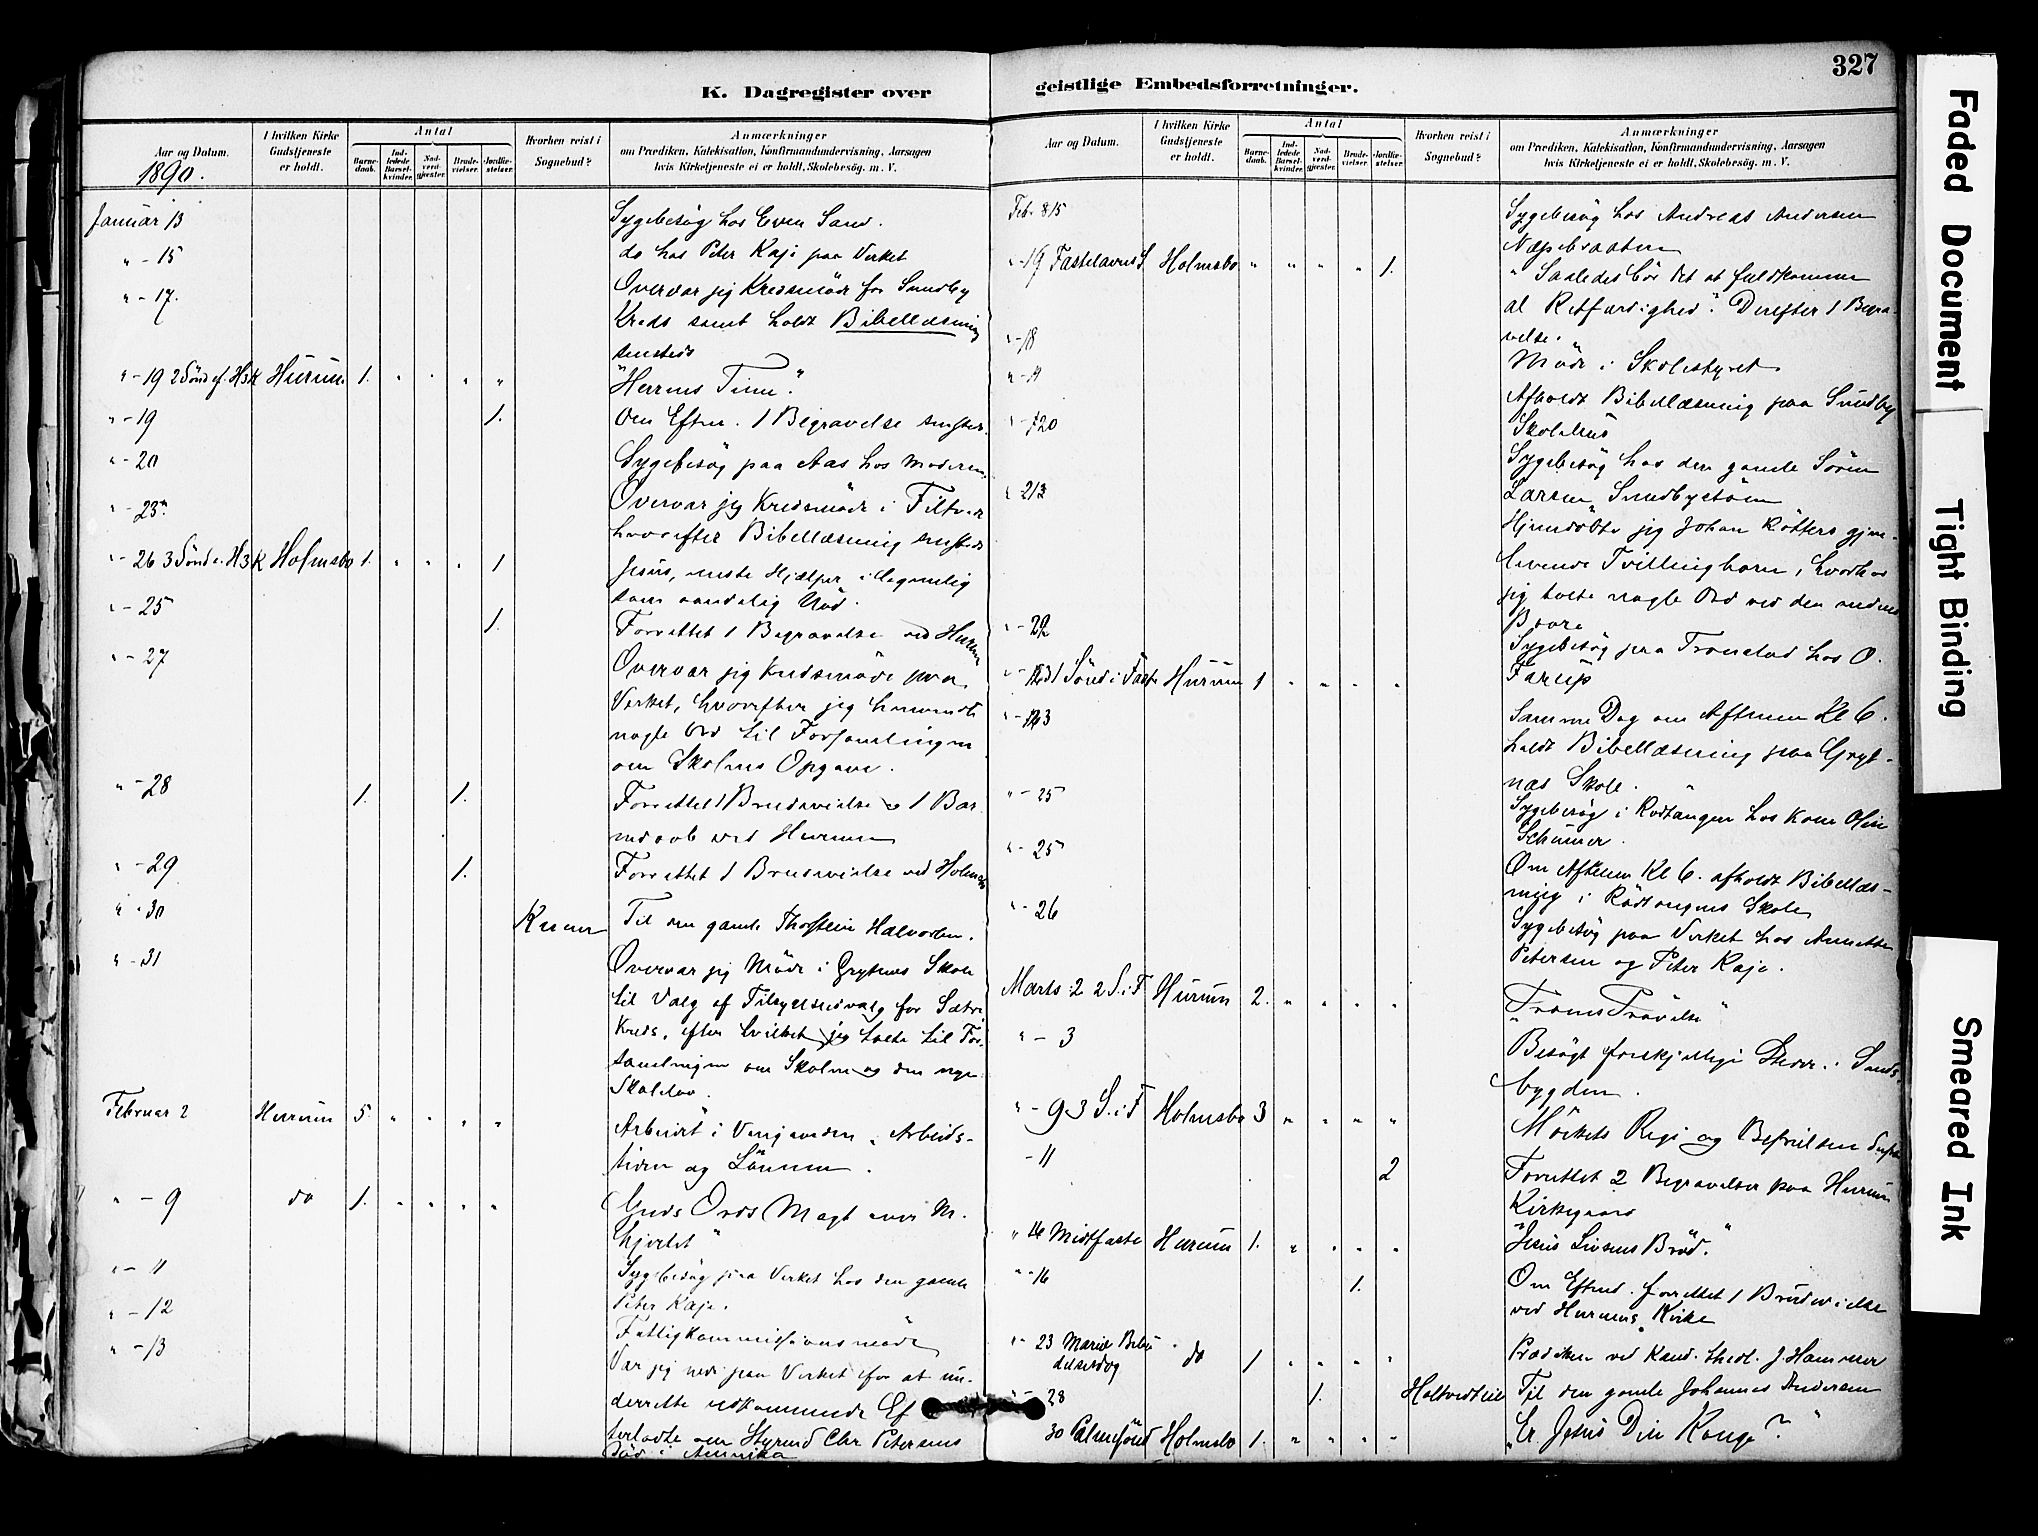 327
K. Dagregister over
Aar og Datum.
I hvilken Kirke Gudstjeneste er holdt.
Antal
Barnedaab.
Indledede Barselkvinder.
Nadverdgjester.
Brudevielser.
Jordfæstelser.
Hvorhen reist i Sognebud?
Anmærkninger
om Prædiken, Katekisation, Konfirmandundervisning, Aarsagen
hvis Kirketjeneste ei er holdt, Skolebesög. m. V.
1890.
Januar 13 Sygebesøg hos Even Sand.
" - 15 do hos Peter Kaje paa Verket
" - 17. Overvar jeg Kredsmöde for Sundby
Kreds samt holdt Bibellæsning
sensteds
" - 19 2 Sönd ef. H3K Hurum 1. " " " " "Herrens Time."
" - 19 1. Om Efterm. 1 Begravelse sensteds.
" - 20 Sygebesøg paa Aas hos Moderen
" - 23de Overvar jeg Kredsmöde i Filtvedt
hvorefter Bibellæsning sensteds
" - 26 3 Sönd e. H3K Holmsbo 1. " " " 1 Jesus, eneste Hjælper i legemlig
som aandelig Nöd.
" - 25 1. Forrettet 1 Begravelse ved Hurum
" - 27 Overvar jeg Kredsmöde paa
Verket, hvorefter jeg henvendte
nogle Ord til Forsamlingen
om Skolens Opgave.
" - 28 1. 1. Forrettet 1 Brudevielse og 1 Bar
nedaab ved Hurum
" - 29 1. Forrettet 1 Brudevielse ved Holmsbo
" - 30 Til den gamle Thorstein Halvorsen.
" - 31 Overvar jeg Möde i Grytnes Skole
til Valg af Tilsynsudvalg for Sætre
Kreds, efter hvilket jeg talte til For-
samlingen om Skolen og den nye
Skolelov.
Februar 2 Hurum 5. " " " " Arbeidet i Vingaarden, Arbeids-
tiden og Lönnen.
" - 9 do 1. " " " " Guds Ords Magt over M.
hjertet"
" - 11 Sygebesøg paa Verket hos den gamle
Peter Kaje.
" - 12 Fattigkommissionsmöde
" - 13 Var jeg nede paa Verket for at un-
derrette vedkommende Ef
terladte om Styrmd Chr Petersens
Död i Amerika
geistlige Embedsforretninger.
Aar og Datum.
I hvilken Kirke Gudstjeneste er holdt.
Antal
Barnedaab.
Indledede Barselkvinder.
Nadverdgjester.
Brudevielser.
Jordfæstelser.
Hvorhen reist i Sognebud?
Anmærkninger
om Prædiken, Katekisation, Konfirmandundervisning, Aarsagen
hvis Kirketjeneste ei er holdt, Skolebesög. m. V.
Feb. 15 Sygebesøg hos Andreas Andersen
Fastelavns S. Holmsbo " " " " 1. "Saaledes bör det at fuldkomme
al Retfærdighed". Derefter 1 Begra-
velse.
" - 18 Möde i Skolestyret
Afholdt Bibellæsning paa Sundby
Skolehus
" - 20 Sygebesøg hos den gamle Sören
Larsen,
Hjemdöbte jeg Johan Rötters gjen-
levende Tvillingbarn, hvorhos
jeg talte nogle Ord ved den andens
Baare
" - 22 Sygebesøg paa Tronstad hos O.
Farup
1 Sönd i Faste Hurum 1 " " " " Samme Dag om Aftenen Kl 6.
holdt Bibellæsning paa Gryt-
nes Skole.
" - 25 Sygebesøg i Rödtangen hos Kone Oline
" - 25 Om Aftenen Kl 6. afholdt Bibellæs-
ning i Rödtangens Skole
" - 26 Sygebesøg paa Verket hos Annette
Petersen og Peter Kaje.
Marts 2 2 S. i F Hurum 2. " " " " "Troens Prövelse"
" - 3 Besögt forskjellige Steder i Sands-
bygden.
" - 9 3 S. i F Holmsbo 3 " " " " Mörkets Rige og Befrielsen derfra
- 11 2 Forrettet 2 Begravelser paa Hurum
Kirkegaard
" 16 Midtfaste Hurum 1. " " " " "Jesus Livsens Bröd."
" - 16 1. Om Efterm. forrettet 1 Brudevielse
ved Hurums Kirke
" - 23 Mariæ Bebu
delsesdag do 1 " " " " Prædiken ved Kand. theol. J. Hammer
" - 28 1. Til den gamle Johannes Andersen
30 Palmesönd Holmsbo 1. " " " " "Er Jesus Din Konge?"
Faded Document
Tight Binding
Smeared Ink